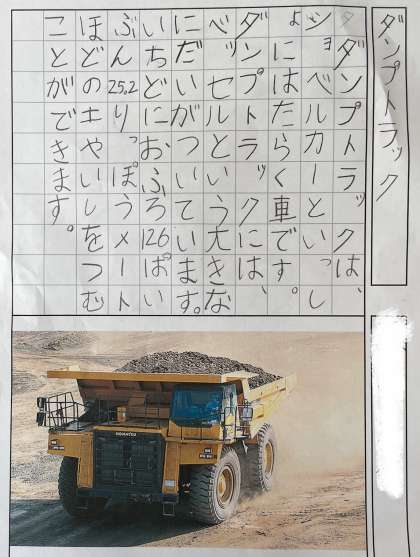 ダンプトラック
ダンプトラックは、
ショベルカーといっし
ょにはたらく車です。
ダンプトラックには、
ベッセルという大きな
にだいがついています。
いちどにおふろ126ぱい
ぶん25.2りっぽうメート
ほどの土やいしをつむ
ことができます。
KOMATSU